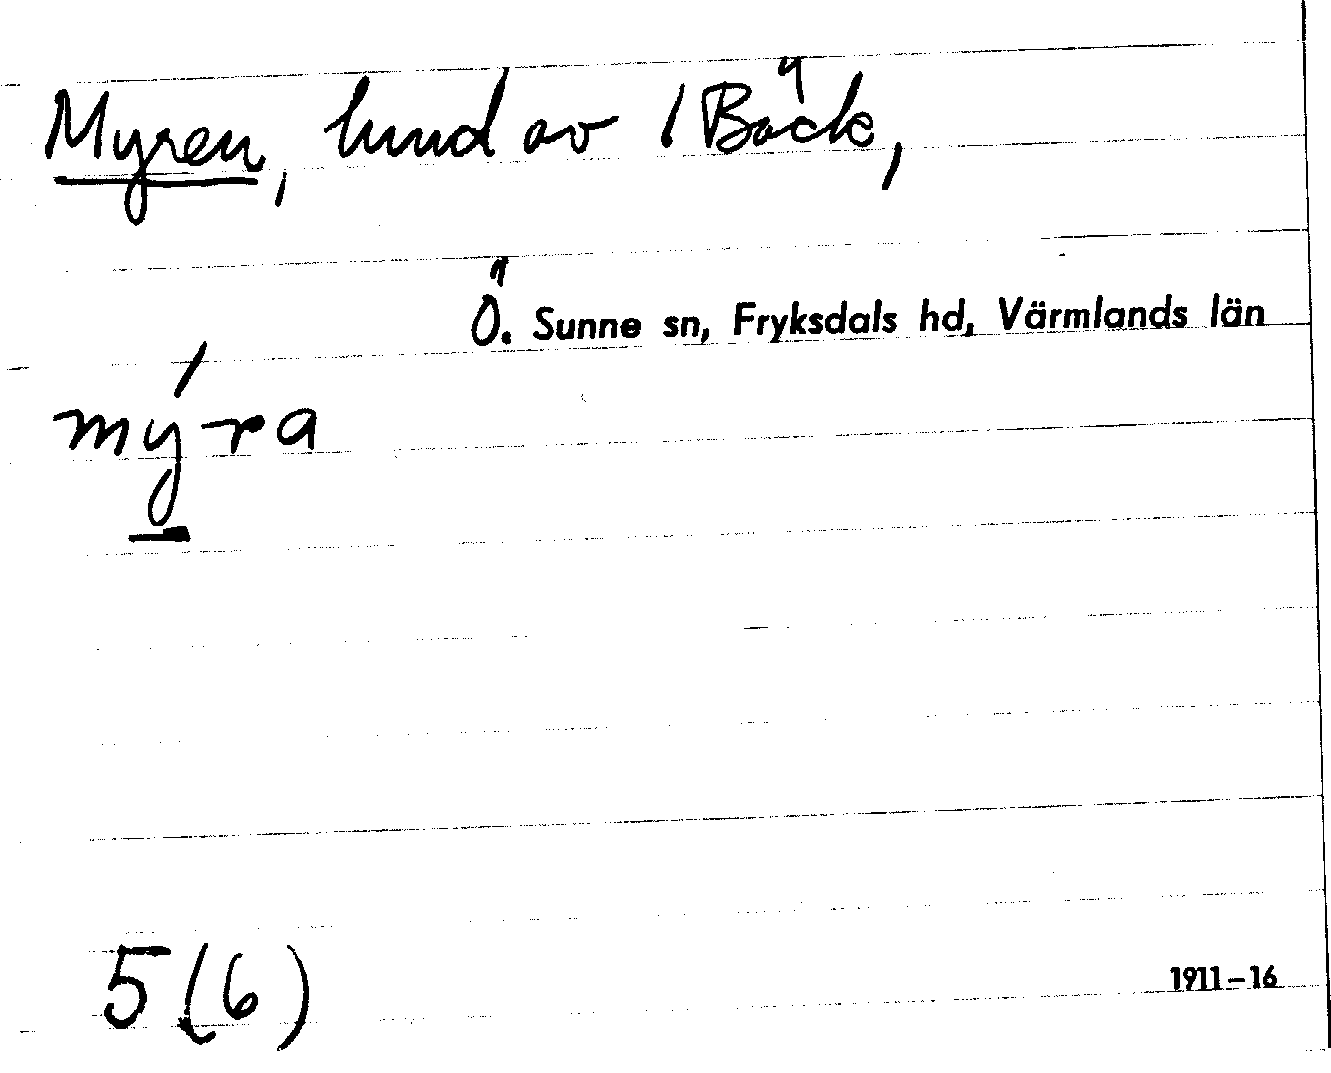 Myren, hmd av 1 Bäck,
Ö. Sunne sn, Fryksdals hd, Värmlands län
mýra
5(6)
1911–16